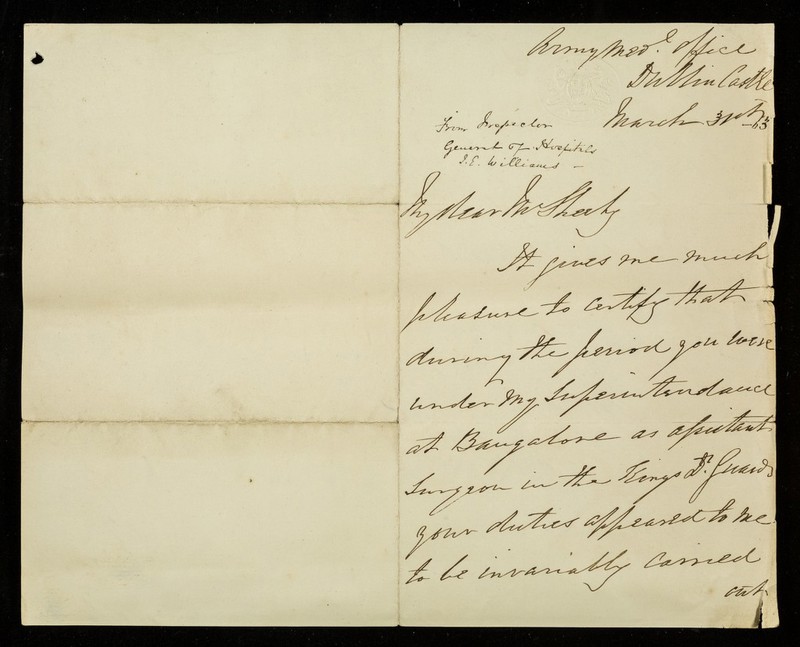 Army Med.l Office
Dublin Castle
March 31st/65
From Inspector
General of Hospitals
J.E. Williams -
My dear Mr Sheehy
It gives me much
pleasure to certify that
during the period you were
under my Superintendance
at Bangalore as assistant
Surgeon in the Kings Dr. Guards
your duties appeared to me
to be invariably carried
out